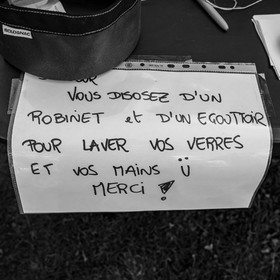 BOLOGNAC
VOUS DISOSEZ D'UN
ROBINET et D'UN EGOUTTOIR
POUR LAVER VOS VERRES
ET VOS MAINS Ü
MERCI !